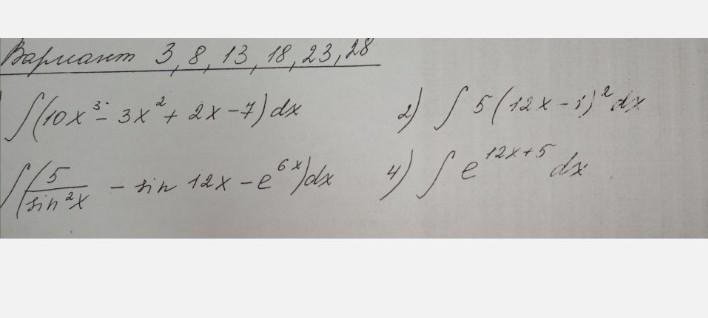 Вариант 3, 8, 13, 18, 23, 28
∫(10x³ - 3x² + 2x - 7)dx 2) ∫ 5(12x - 1)² dx
∫(5/sin²x - sin 12x - e^{6x})dx 4) ∫ e^{12x+5} dx